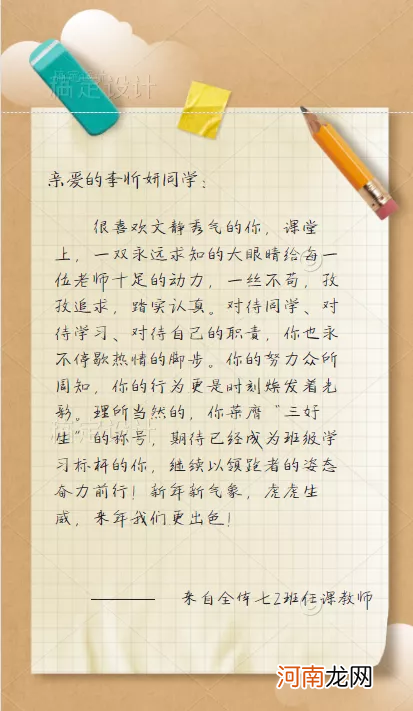 搞定设计
亲爱的李忻妍同学：
很喜欢文静秀气的你，课堂
上，一双永远求知的大眼睛给每一
位老师十足的动力，一丝不苟，孜
孜追求，踏实认真。对待同学、对
待学习、对待自己的职责，你也永
不停歇热情的脚步。你的努力众所
周知，你的行为更是时刻焕发着光
彩。理所当然的，你荣膺“三好
生”的称号，期待已经成为班级学
习标杆的你，继续以领跑者的姿态
奋力前行！新年新气象，虎虎生
威，来年我们更出色！
——— 来自全体七2班任课教师
河南龙网